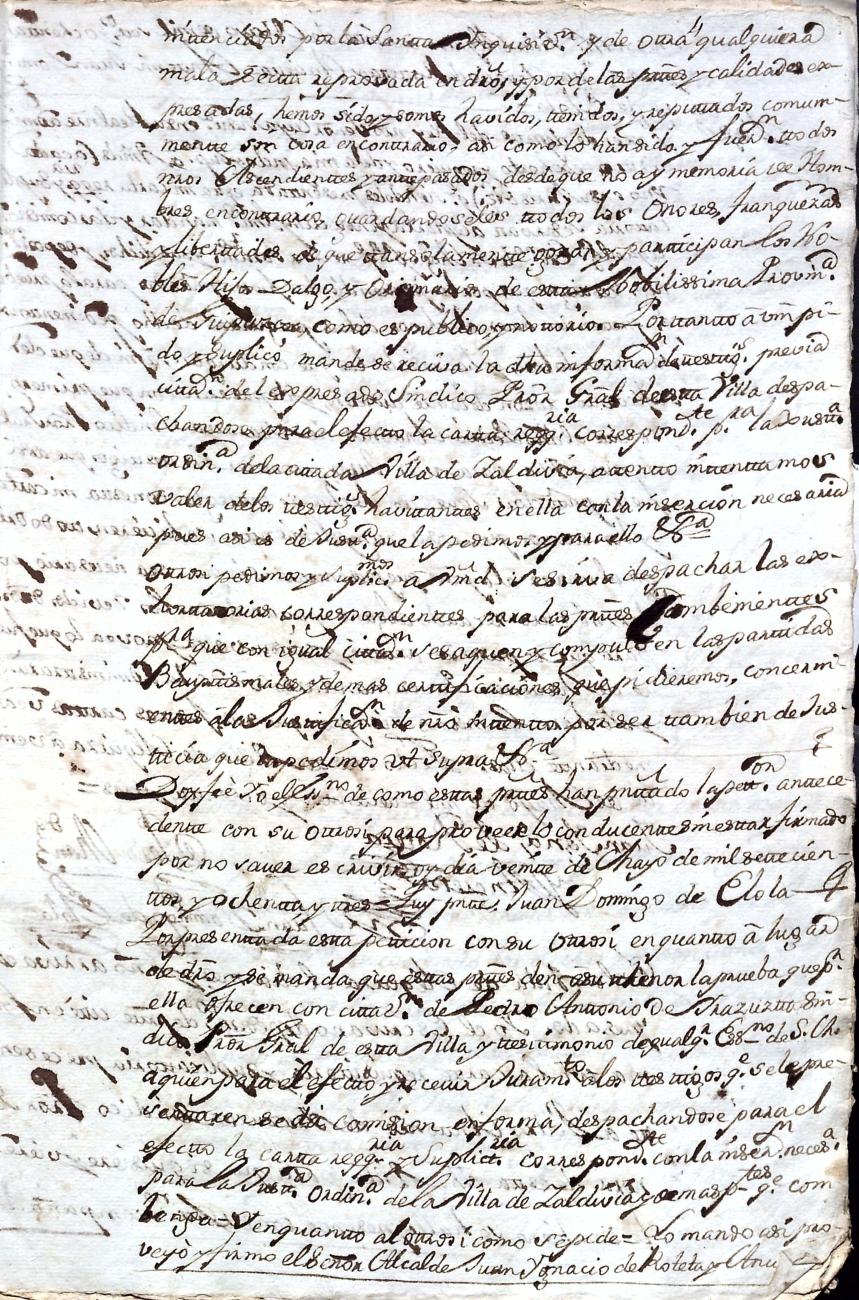 por la Santta Inquisicn. y de otra qualquiera
mala Sectta reprovada en dro, y por de las prttes y calidades ex-
presadas, hemos sido y somos havidos, ttenidos, y reputtados comun-
mente sin cosa en conttrario, asi como lo han sido y fueron. ttodos
nros Ascendienttes y antepasados desde que no ay memoria de Hom-
bres, en conttrario, guardandoseles ttodos los Onores, franquezas
y liberttades, de que ttan solamente gozan y partticipan los No-
bles Hijos Dalgo, y Originarios de estta Nobilissima Provina.
de Guipuzcoa, como es publico, y nottorio. Por ttantto â vm pi-
do y suplico mande se reciva la dha informan. de testtigs. previa
cittan. del expresado Sindico Pror. Gral de estta Villa despa-
chandose para el efectto la cartta reqq.ria correspond.te p.ra la Justt.a
ordin.a de la cittada Villa de Zaldivia, attentto inttenttamos
valer de los testtigs. havittantes en ella con la insercion necesaria
pues asi es de Justt.a que la pedimos y para ello &.a
Ottrosi pedimos y suplicamos a Vmd. se sirva despachar las ex-
horttattorias correspondienttes para las prttes combenienttes
p.ra que con igual cittan. se saquen y compulsen las parttidas
Bauptismales, y demas certtificaciones, que pidieremos, concerni-
enttes â la Justtifican. de nro inttentto por ser ttambien de Jus-
tticia que la pedimos ut supra &.a
Doy fee Yo el Ess.no de como esttas prttes han presenttado la pett.on antece-
dente con su Ottrosi para proveer lo conducente sin esttar firmado
por no saver escrivir oy dia veintte de Mayo de mil settecien-
ttos y ochentta y ttres = Juan Domingo de Elola
Por presenttada estta petticion con su Ottrosi en quantto â lugar
de dro y se manda que esttas prttes den a su thenor la prueba que p.r
ella ofrecen con cittan. de Pedro Antonio de Sin-
dico Pror. Gral de estta Villa y ttesttimonio de qualq.r Ess.no de S. M.
a quien para el efectto y recevir Juram.to â los ttesttigos q.e se le pre-
senttaren se dâ comision en forma, despachandose para el
efectto la cartta reqq.ria y Suplictt.ria correspond.te con la inser.n neces.a
para la Justt.a Ordin.a de la Villa de Zaldivia y demas p.tes q.e com-
benga = Y en quantto al ottrosi como se pide = Lo mandô asi pro-
veyô y firmô el Señor Alcalde Juan Ygnacio de Roleta y